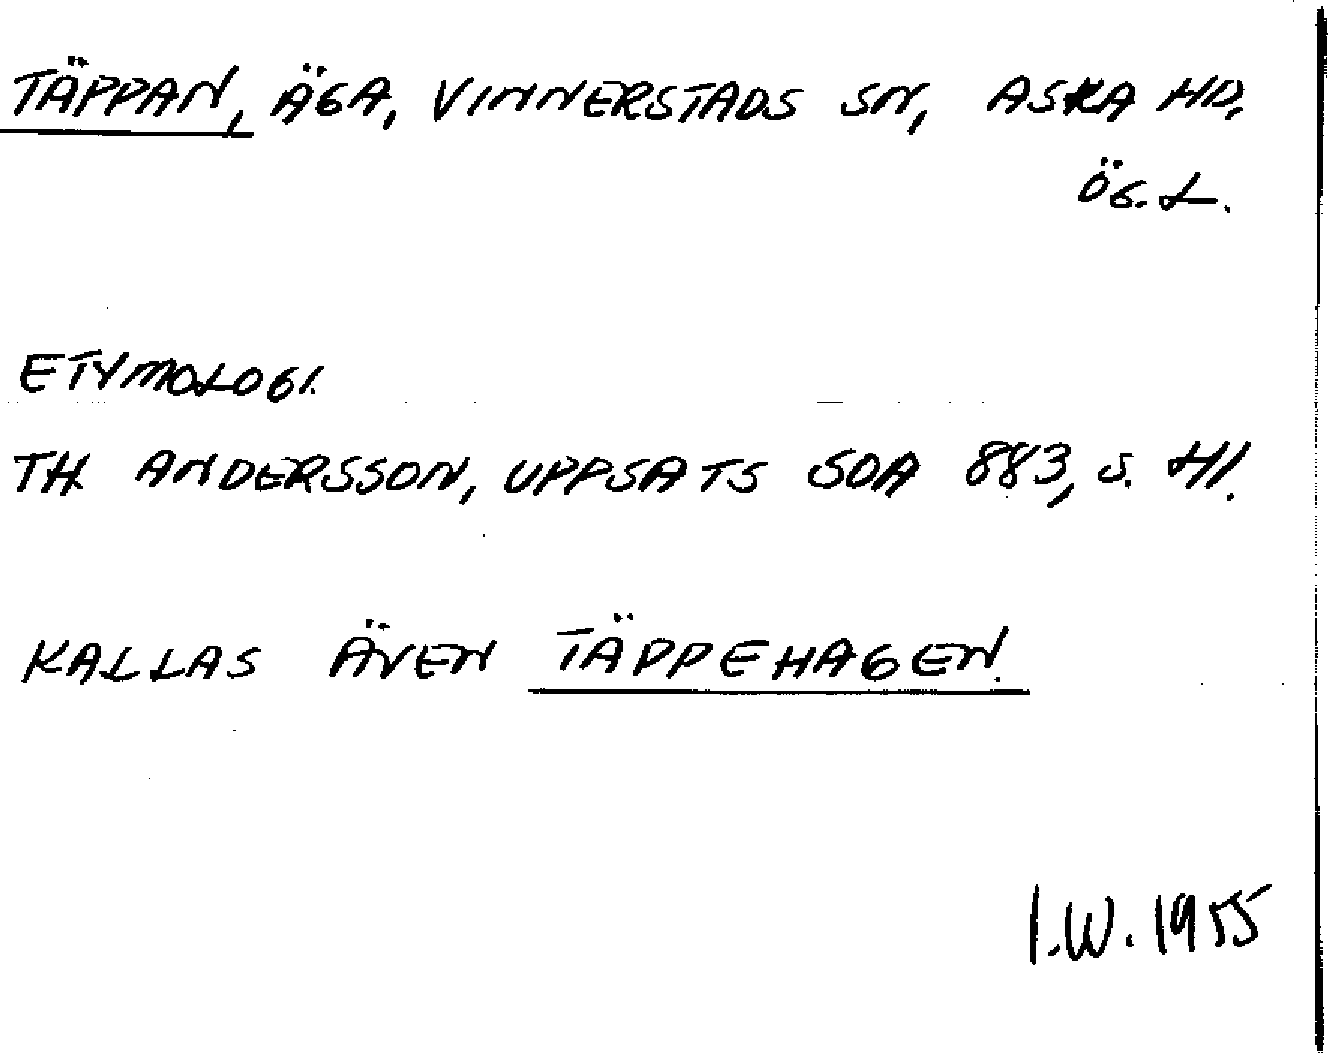 TÄPPAN, ÄGA, VINNERSTADS SN, ASKA HD,
ÖG. L.
ETYMOLOGI.
TH. ANDERSSON, UPPSATS SOA 883, S. 41.
KALLAS ÄVEN TÄPPEHAGEN.
I.W. 1955